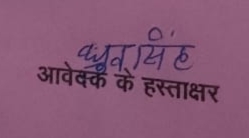 ध्रुव सिंह
आवेदक के हस्ताक्षर